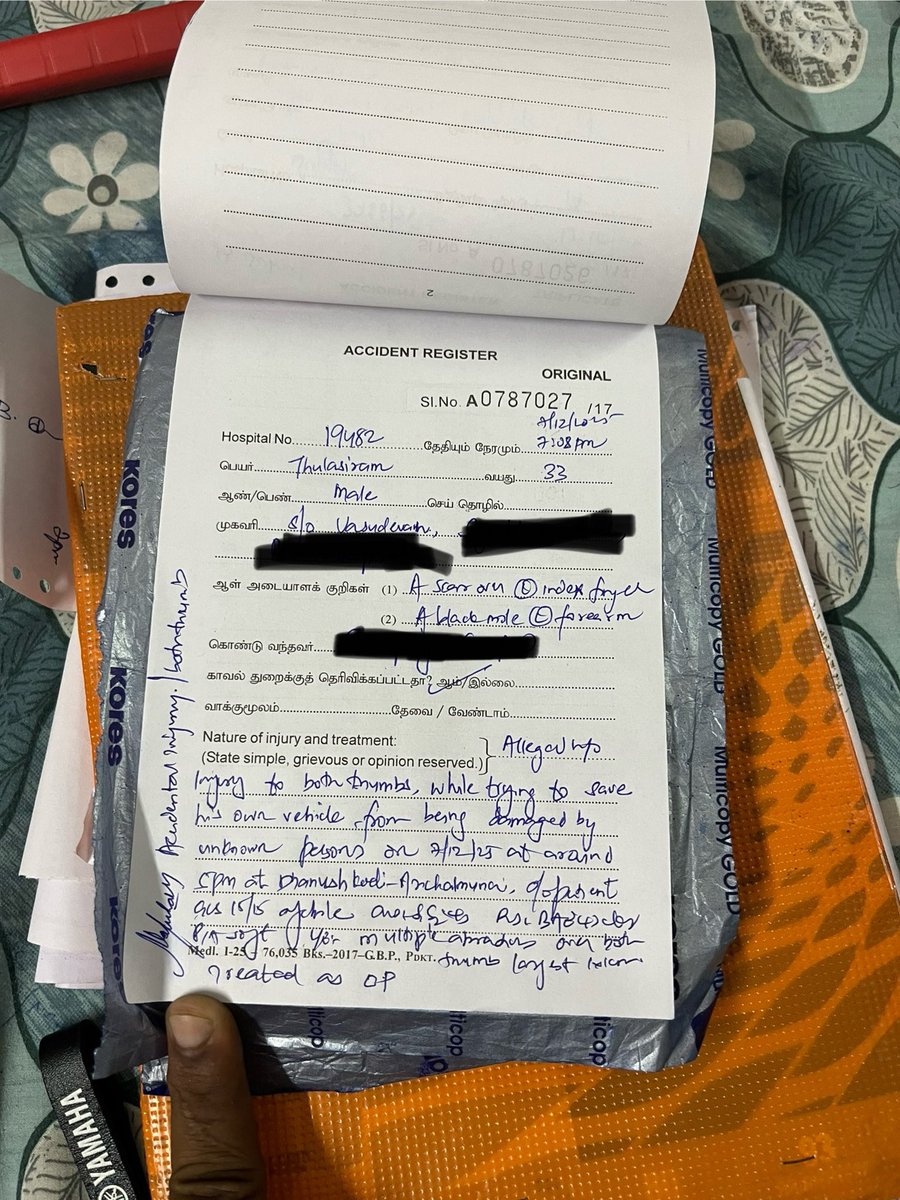 2
ACCIDENT REGISTER
ORIGINAL
Sl.No. A0787027 /17
7/12/2025
Hospital No. 19482 தேதியும் நேரமும் 7:08pm
பெயர் Thulasiram வயது 33
ஆண்/பெண் Male செய் தொழில்
முகவரி S/o Vasudevan,
ஆள் அடையாளக் குறிகள் (1) A scar over index finger
(2) A black mole forearm
கொண்டு வந்தவர்
காவல் துறைக்குத் தெரிவிக்கப்பட்டதா? ஆம்/இல்லை
வாக்குமூலம் தேவை / வேண்டாம்
Nature of injury and treatment:
(State simple, grievous or opinion reserved.) } Alleged h/o
Injury to both thumbs, while trying to save
his own vehicle from being damaged by
unknown persons on 7/12/25 at around
5pm at Dhanushkodi-Arichalmunai, O/E patient
GCS 15/15 afebrile
P/A soft multiple abrasions over both
Medl. 1-25 – 76,035 Bks.–2017–G.B.P., PDKT. thumb largest
Treated as OP
Accidental injury.
kores
kores
kores
Multicopy GOLD
Multicopy GOLD
Multicopy GOLD
Multicop
YAMAHA